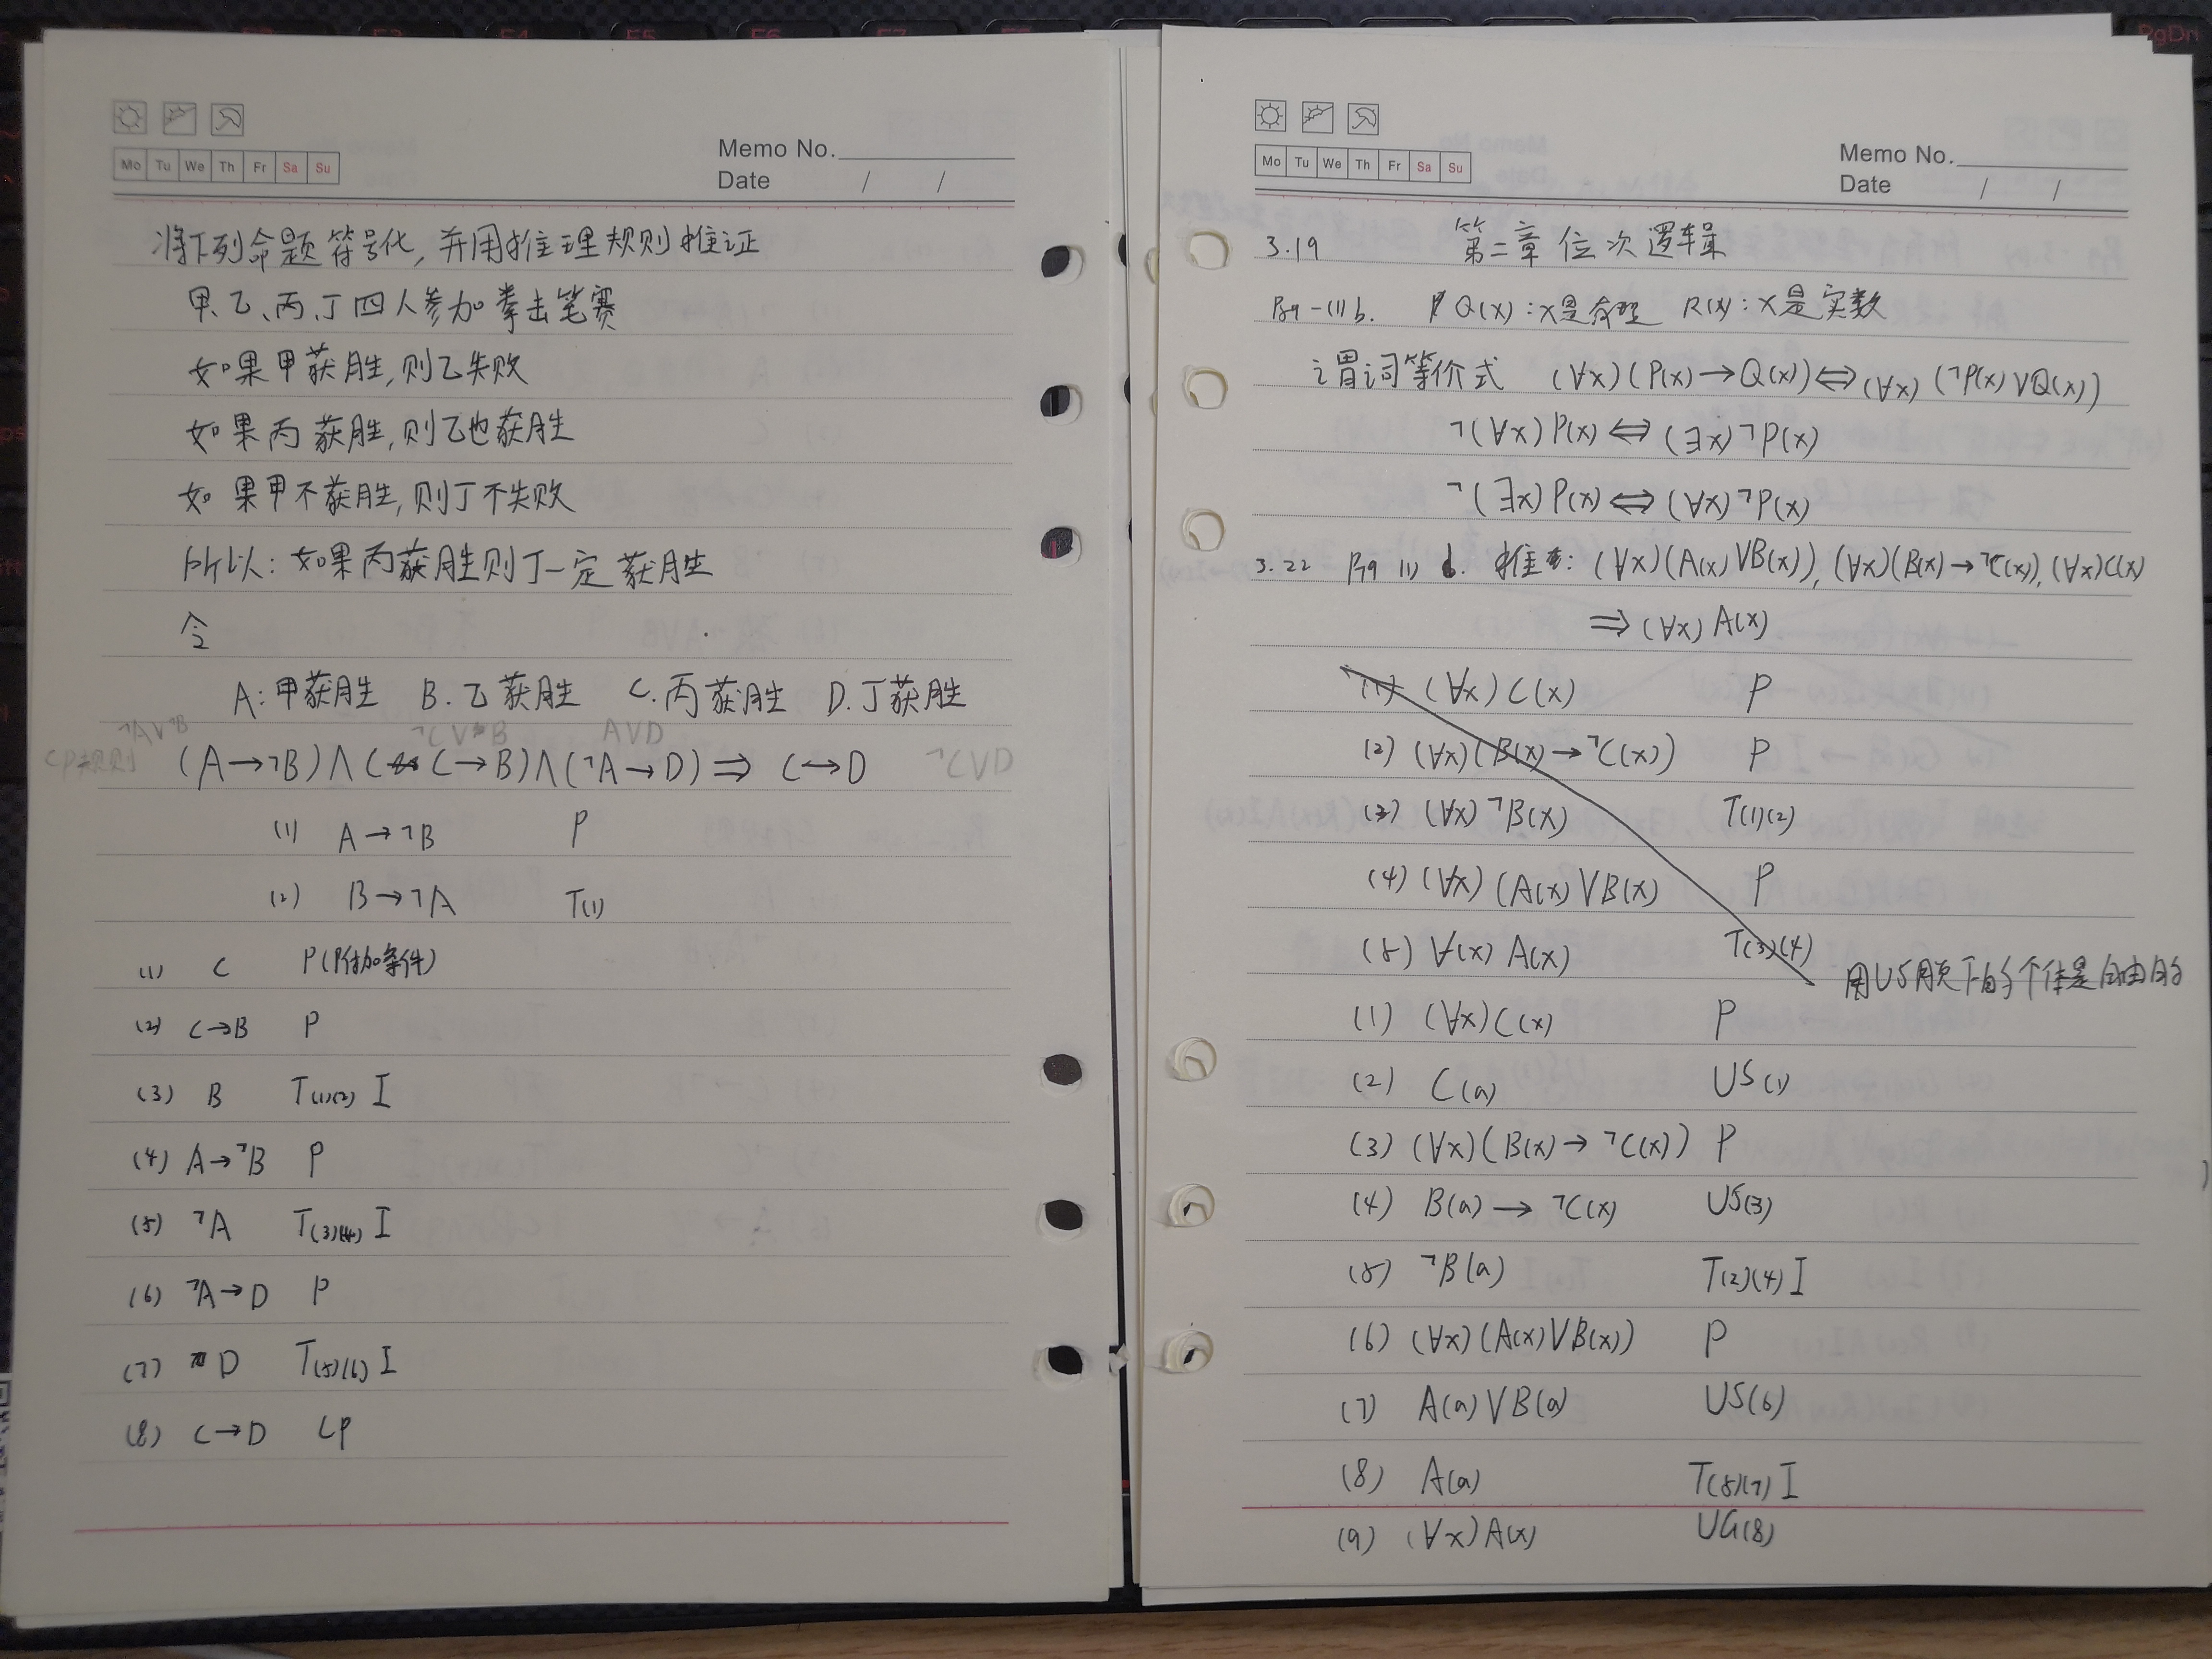 Mo Tu We Th Fr Sa Su
Memo No.
Date / /
将下列命题符号化,并用推理规则推证
甲、乙、丙、丁四人参加拳击笔赛
如果甲获胜,则乙失败
如果丙获胜,则乙也获胜
如果甲不获胜,则丁不失败
所以:如果丙获胜则丁一定获胜
令
A:甲获胜 B.乙获胜 C.丙获胜 D.丁获胜
¬A∨¬B ¬C∨B A∨D
CP规则 (A→¬B)∧(C→B)∧(¬A→D)⇒ C→D ¬C∨D
(1) A→¬B P
(2) B→¬A T(1)
(1) C P(附加条件)
(2) C→B P
(3) B T(1)(2) I
(4) A→¬B P
(5) ¬A T(3)(4) I
(6) ¬A→D P
(7) D T(5)(6) I
(8) C→D CP
Mo Tu We Th Fr Sa Su
Memo No.
Date / /
3.19 第二章 位次逻辑
P69-(1)b. Q(x):x是有理 R(x):x是实数
谓词等价式 (∀x)(P(x)→Q(x))⇔(∀x)(¬P(x)∨Q(x))
¬(∀x)P(x)⇔(∃x)¬P(x)
¬(∃x)P(x)⇔(∀x)¬P(x)
3.22 (1) 推: (∀x)(A(x)∨B(x)),(∀x)(B(x)→¬C(x)),(∀x)C(x)
⇒(∀x)A(x)
(1) (∀x)C(x) P
(2) (∀x)(B(x)→¬C(x)) P
(3) (∀x)¬B(x) T(1)(2)
(4) (∀x)(A(x)∨B(x) P
(5) ∀(x)A(x) T(3)(4)
用US用页下的个体是自由的
(1) (∀x)C(x) P
(2) C(a) US(1)
(3) (∀x)(B(x)→¬C(x)) P
(4) B(a)→¬C(x) US(3)
(5) ¬B(a) T(2)(4) I
(6) (∀x)(A(x)∨B(x)) P
(7) A(a)∨B(a) US(6)
(8) A(a) T(5)(7) I
(9) (∀x)A(x) UG(8)